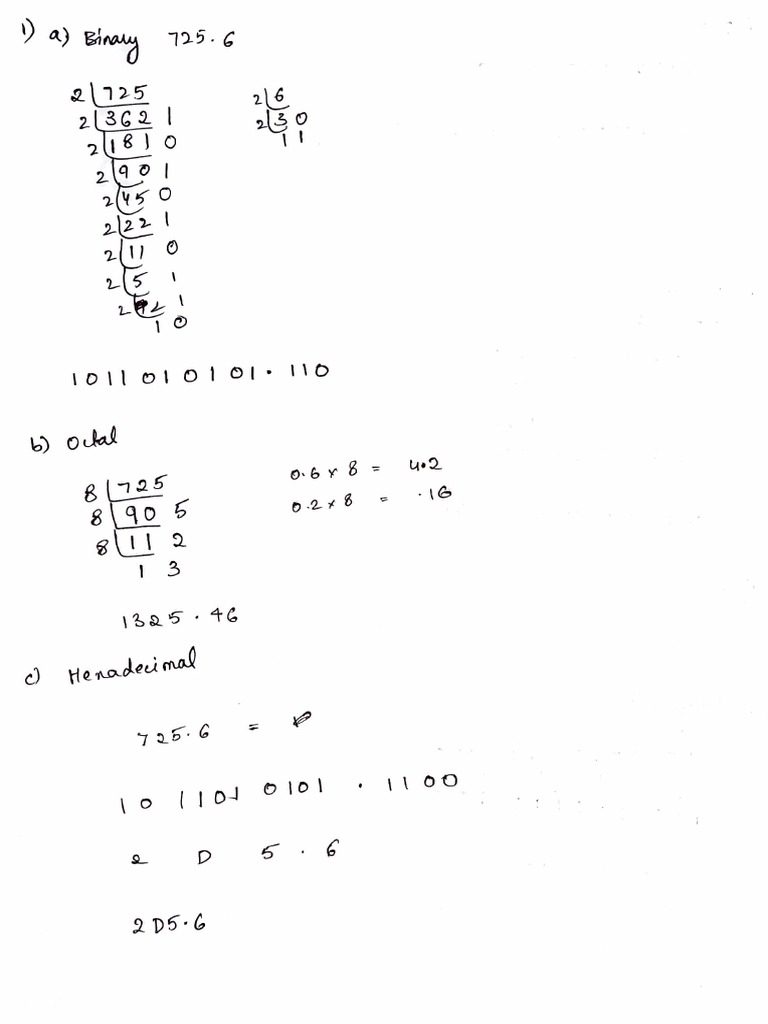 1) a) Binary 725.6
2 725
2 362 1
2 181 0
2 90 1
2 45 0
2 22 1
2 11 0
2 5 1
2 2 1
1 0
2 6
2 3 0
1 1
1011010101.110
b) Octal
8 725
8 90 5
8 11 2
1 3
0.6 x 8 = 4.2
0.2 x 8 = .16
1325.46
c) Hexadecimal
725.6 =
10 1101 0101 . 1100
2 D 5 . 6
2D5.6